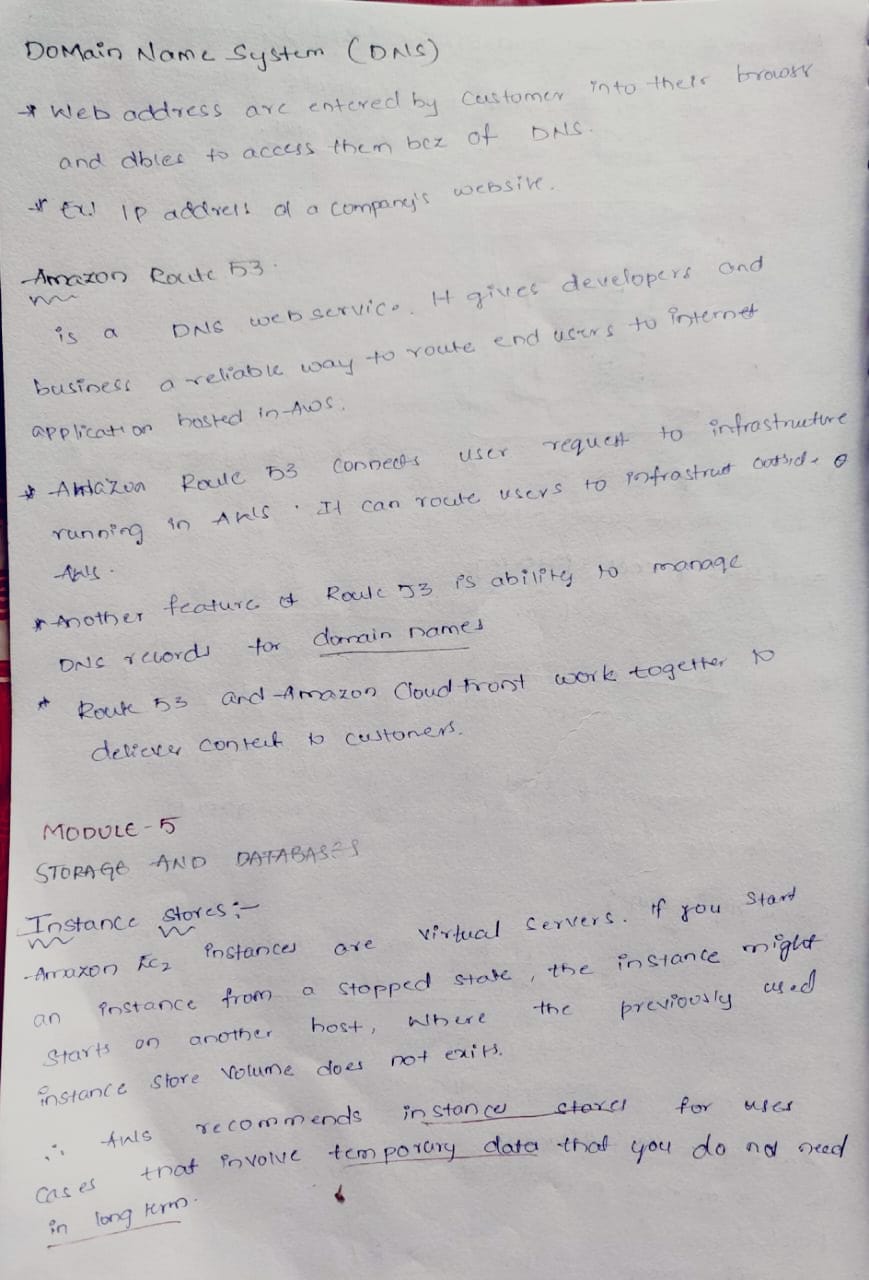 DOMain Name System (DNS)
* Web address are entered by Customer into their browsr
and ables to access them bcz of DNS.
* Ex! IP address of a company's website.
Amazon Route 53.
is a DNS web service. It gives developers and
business a reliable way to route end users to internet
application hosted in AWS.
* Amazon Route 53 connects user request to infrastructure
running in AWS. It can route users to infrastruct outside o
AWS.
* Another feature of Route 53 is ability to manage
DNS records for domain names
* Route 53 and Amazon Cloud front work together to
deliever content to customers.
MODULE-5
STORAGE AND DATABASES
Instance Stores:-
Amazon EC2 instances are virtual servers. If you start
an instance from a stopped state, the instance might
starts on another host, where the previously used
instance store volume does not exits.
∴ AWS recommends instance stores for uses
cases that involve temporary data that you do not need
in long term.